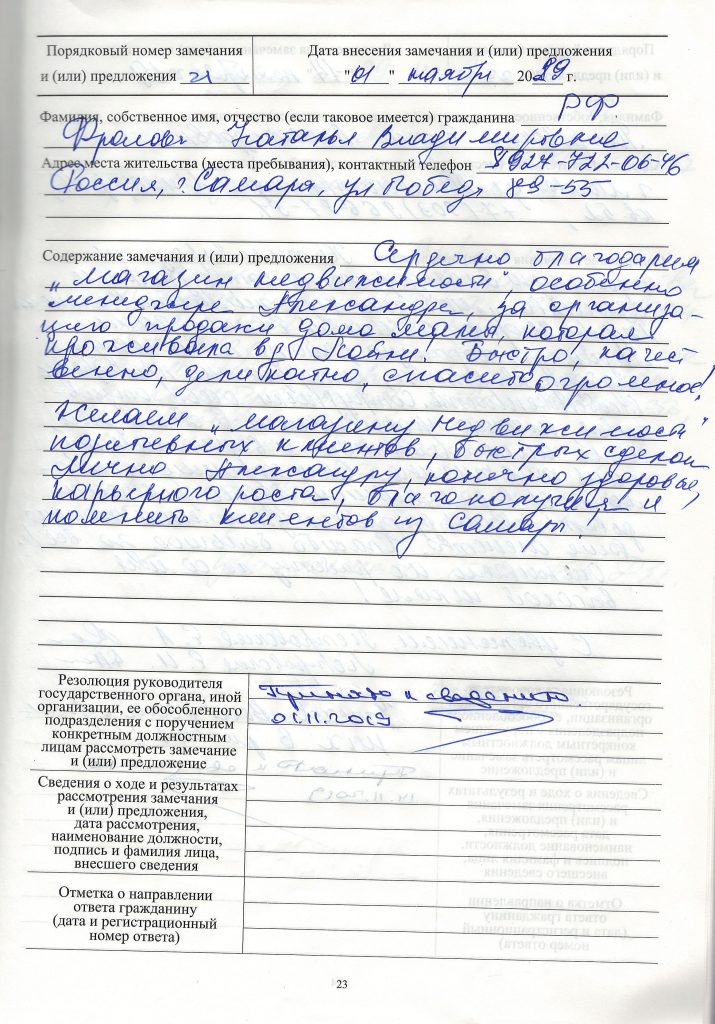 Порядковый номер замечания
и (или) предложения 21
Дата внесения замечания и (или) предложения
"01" ноября 2019 г.
Фамилия, собственное имя, отчество (если таковое имеется) гражданина РФ
Фролова Наталья Владимировна
Адрес места жительства (места пребывания), контактный телефон 8927-722-06-46
Россия, г. Самара, ул Победы 89-55
Содержание замечания и (или) предложения Сердечно благодарим
„Магазин недвижимости", особенно
менеджера Александра, за организа-
цию продажи дома мамы, которая
проживала в д Койни. Быстро, качест
венно, деликатно, спасибо огромное!
Желаем „магазину Недвижимости"
позитивных клиентов, быстрых сделок
Лично Александру, конечно здоровья,
карьерного роста, благополучия и
помнить клиентов из Самары.
Резолюция руководителя
государственного органа, иной
организации, ее обособленного
подразделения с поручением
конкретным должностным
лицам рассмотреть замечание
и (или) предложение
Принято к сведению.
01.11.2019
Сведения о ходе и результатах
рассмотрения замечания
и (или) предложения,
дата рассмотрения,
наименование должности,
подпись и фамилия лица,
внесшего сведения
Отметка о направлении
ответа гражданину
(дата и регистрационный
номер ответа)
23